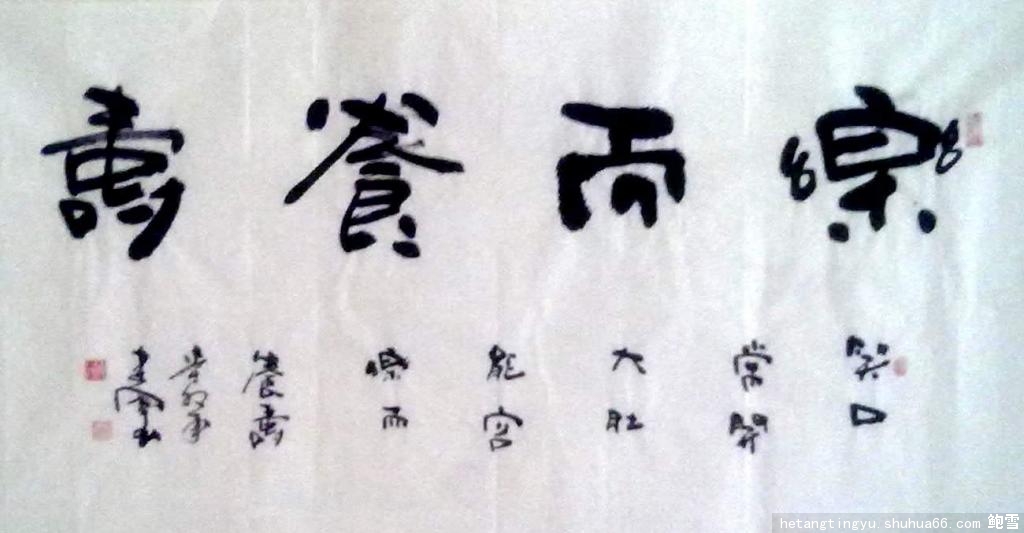 樂而養壽
笑口
常開
大肚
能容
樂而
養壽
hetangtingyu.shuhua66.com 鲍雪